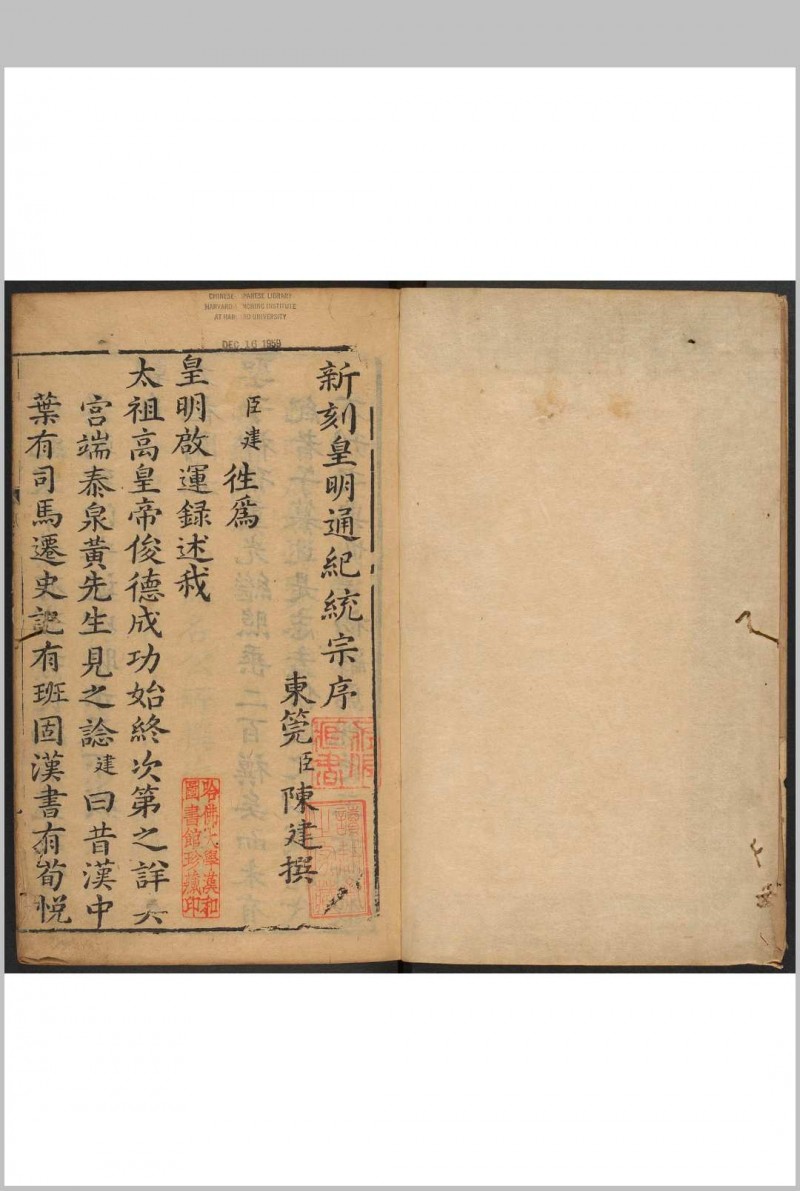 新刻皇明通紀統宗序
東筦臣陳建撰
臣建徃爲
皇明啟運録述我
太祖高皇帝俊德成功始終次第之詳矣
宮端泰泉黃先生見之諗建曰昔漢中
葉有司馬遷史記有班固漢書有荀悅
哈佛大學漢和
圖書館珍藏印
CHINESE-
HARVARD
DEC 16 1959